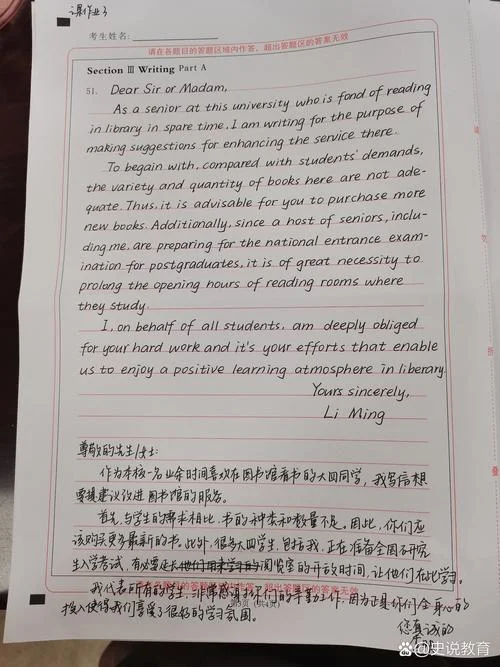 课作业3
考生姓名:
请在各题目的答题区域内作答,超出答题区的答案无效
Section Ⅲ Writing Part A
51. Dear Sir or Madam,
As a senior at this university who is fond of reading
in library in spare time, I am writing for the purpose of
making suggestions for enhancing the service there.
To begain with, compared with students' demands,
the variety and quantity of books here are not ade-
quate. Thus, it is advisable for you to purchase more
new books. Additionally, since a host of seniors, inclu-
ding me, are preparing for the national entrance exam-
ination for postgraduates, it is of great necessity to
prolong the opening hours of reading rooms where
they study.
I, on behalf of all students, am deeply obliged
for your hard work and it's your efforts that enable
us to enjoy a positive learning atmosphere in liberary.
Yours sincerely,
Li Ming
尊敬的先生/女士:
作为本校一名业余时间喜欢在图书馆看书的大四同学,我写信想
要提建议改进图书馆的服务。
首先,与学生的需求相比,书的种类和数量不足。因此,你们应
该购买更多最新的书。此外,很多大四学生,包括我,正在准备全国研究
生入学考试,有必要延长阅览室的开放时间,让他们在此学习。
我代表所有的学生,非常感谢你们的辛勤工作,因为正是你们全身心的
投入使得我们享受了很好的学习氛围。
您真诚的
@史说教育